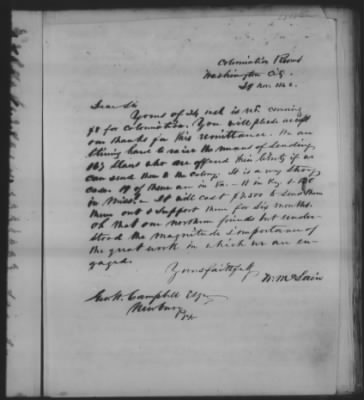 Colonization Rooms
Washington City.
Dear Sir
Yours of 24 inst is rec. covering
for colonization. You will please accept
our thanks for this remittance. We are
trying hard to raise the means of sending
slaves who are offered their liberty if we
can send them to the colony. It is a very strong
case. 19 of them are in Va. - 11 in Ky. &
in Miss. - It will cost $7,500 to send them
them out & support them for six months.
Oh that our northern friends but under-
stood the magnitude & importance of
the great work in which we are en-
gaged.
Yours faithfully
W. McLain
Geo. W. Campbell Esq
Newbury